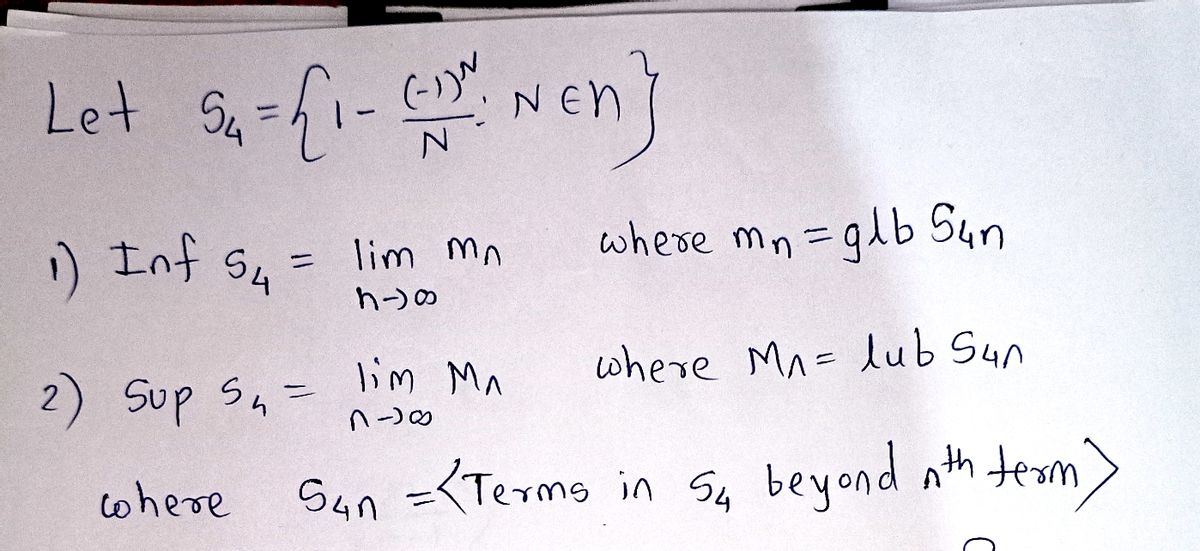 Let S₄ = {1 - (-1)ᴺ/N : N ∈ n}
1) Inf S₄ = lim mn n→∞ where mn = glb S4n
2) Sup S₄ = lim Mn n→∞ where Mn = lub S4n
where S4n = <Terms in S₄ beyond nth term>